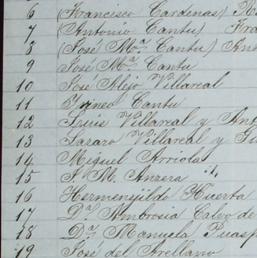 6 (Francisco Cardenas)
7 (Antonio Cantu)
8 (José Ma. Cantu)
9 José Ma. Cantu
10 José Alejo Villareal
11 Cantu
12 Luis Villareal y
13 Lazaro Villareal y
14 Miguel Arriola
15 J. M.
16 Hermenejildo Huerta
17 Da. Ambrosia de
18 Da. Manuela
19 José del Arellano